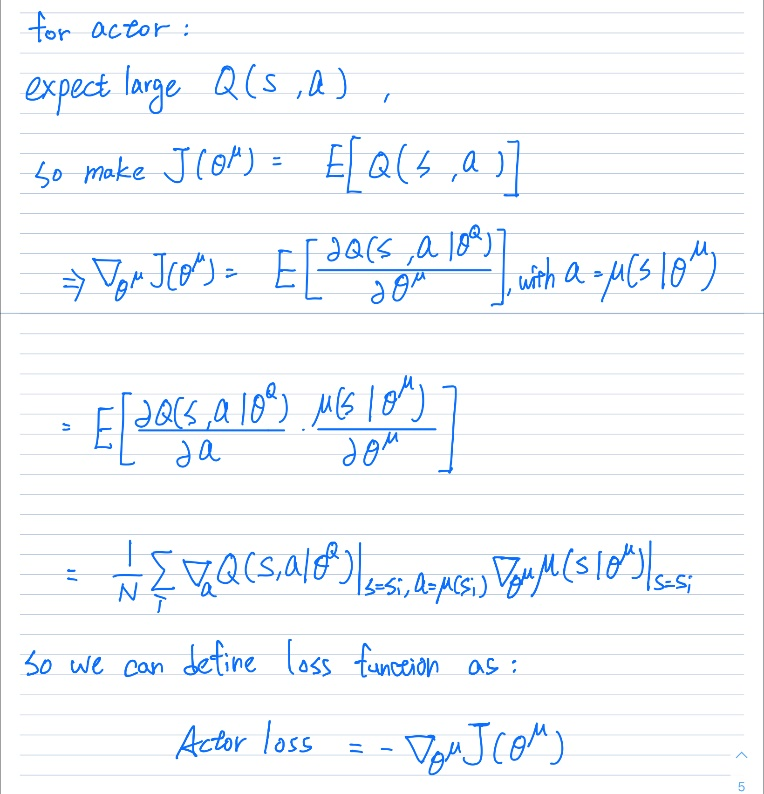 for actor :
expect large Q(s, a) ,
so make J(θ^μ) = E[Q(s, a)]
⇒ ∇_{θ^μ} J(θ^μ) = E[∂Q(s, a|θ^Q) / ∂θ^μ], with a = μ(s|θ^μ)
= E[∂Q(s, a|θ^Q) / ∂a · μ(s|θ^μ) / ∂θ^μ]
= 1/N ∑_i ∇_a Q(s, a|θ^Q)|_{s=s_i, a=μ(s_i)} ∇_{θ^μ} μ(s|θ^μ)|_{s=s_i}
so we can define loss function as :
Actor loss = - ∇_{θ^μ} J(θ^μ)
5